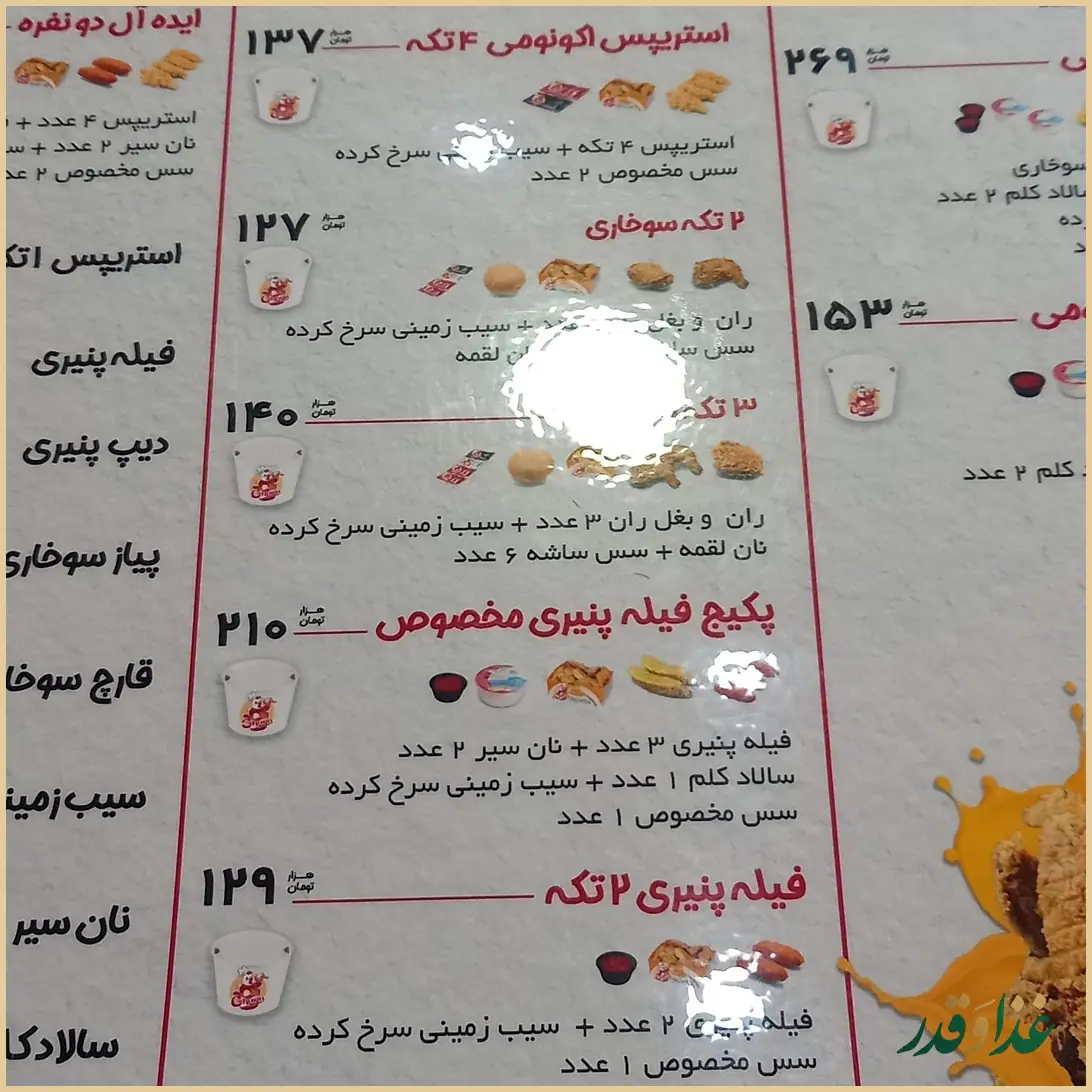 ۲۶۹ هزار تومان
سوخاری
سالاد کلم ۲ عدد
۱۵۳ هزار تومان
کلم ۲ عدد
استریپس اکونومی ۴ تکه ۱۳۷ هزار تومان
استریپس ۴ تکه + سیب سرخ کرده
سس مخصوص ۲ عدد
۲ تکه سوخاری ۱۲۷ هزار تومان
ران و بغل عدد + سیب زمینی سرخ کرده
سس نان لقمه
۳ تکه ۱۴۰ هزار تومان
ران و بغل ران ۳ عدد + سیب زمینی سرخ کرده
نان لقمه + سس ساشه ۶ عدد
پکیج فیله پنیری مخصوص ۲۱۰ هزار تومان
فیله پنیری ۳ عدد + نان سیر ۲ عدد
سالاد کلم ۱ عدد + سیب زمینی سرخ کرده
سس مخصوص ۱ عدد
فیله پنیری ۲ تکه ۱۲۹ هزار تومان
فیله پنیری ۲ عدد + سیب زمینی سرخ کرده
سس مخصوص ۱ عدد
ایده آل دو نفره
استریپس ۴ عدد +
نان سیر ۲ عدد +
سس مخصوص ۲
استریپس ۱
فیله پنیری
دیپ پنیری
پیاز سوخاری
قارچ
سیب
نان سیر
سالاد
غذا و قدر